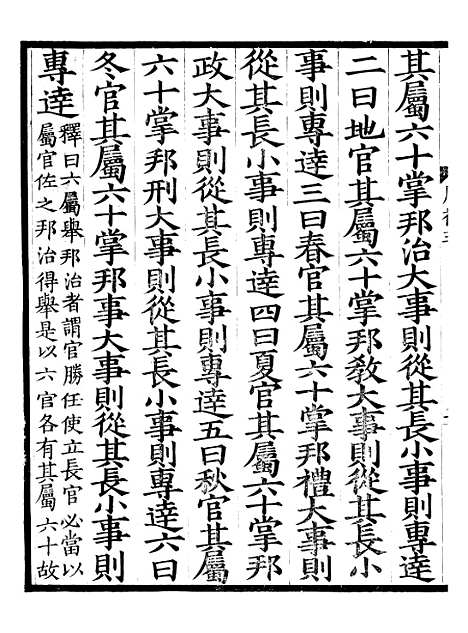 其屬六十掌邦治大事則從其長小事則專達
二曰地官其屬六十掌邦敎大事則從其長小
事則專達三曰春官其屬六十掌邦禮大事則
從其長小事則專達四曰夏官其屬六十掌邦
政大事則從其長小事則專達五曰秋官其屬
六十掌邦刑大事則從其長小事則專達六曰
冬官其屬六十掌邦事大事則從其長小事則
專達
釋曰六屬舉邦治者謂官勝任使立長官必當以
屬官佐之邦治得舉是以六官各有其屬六十故